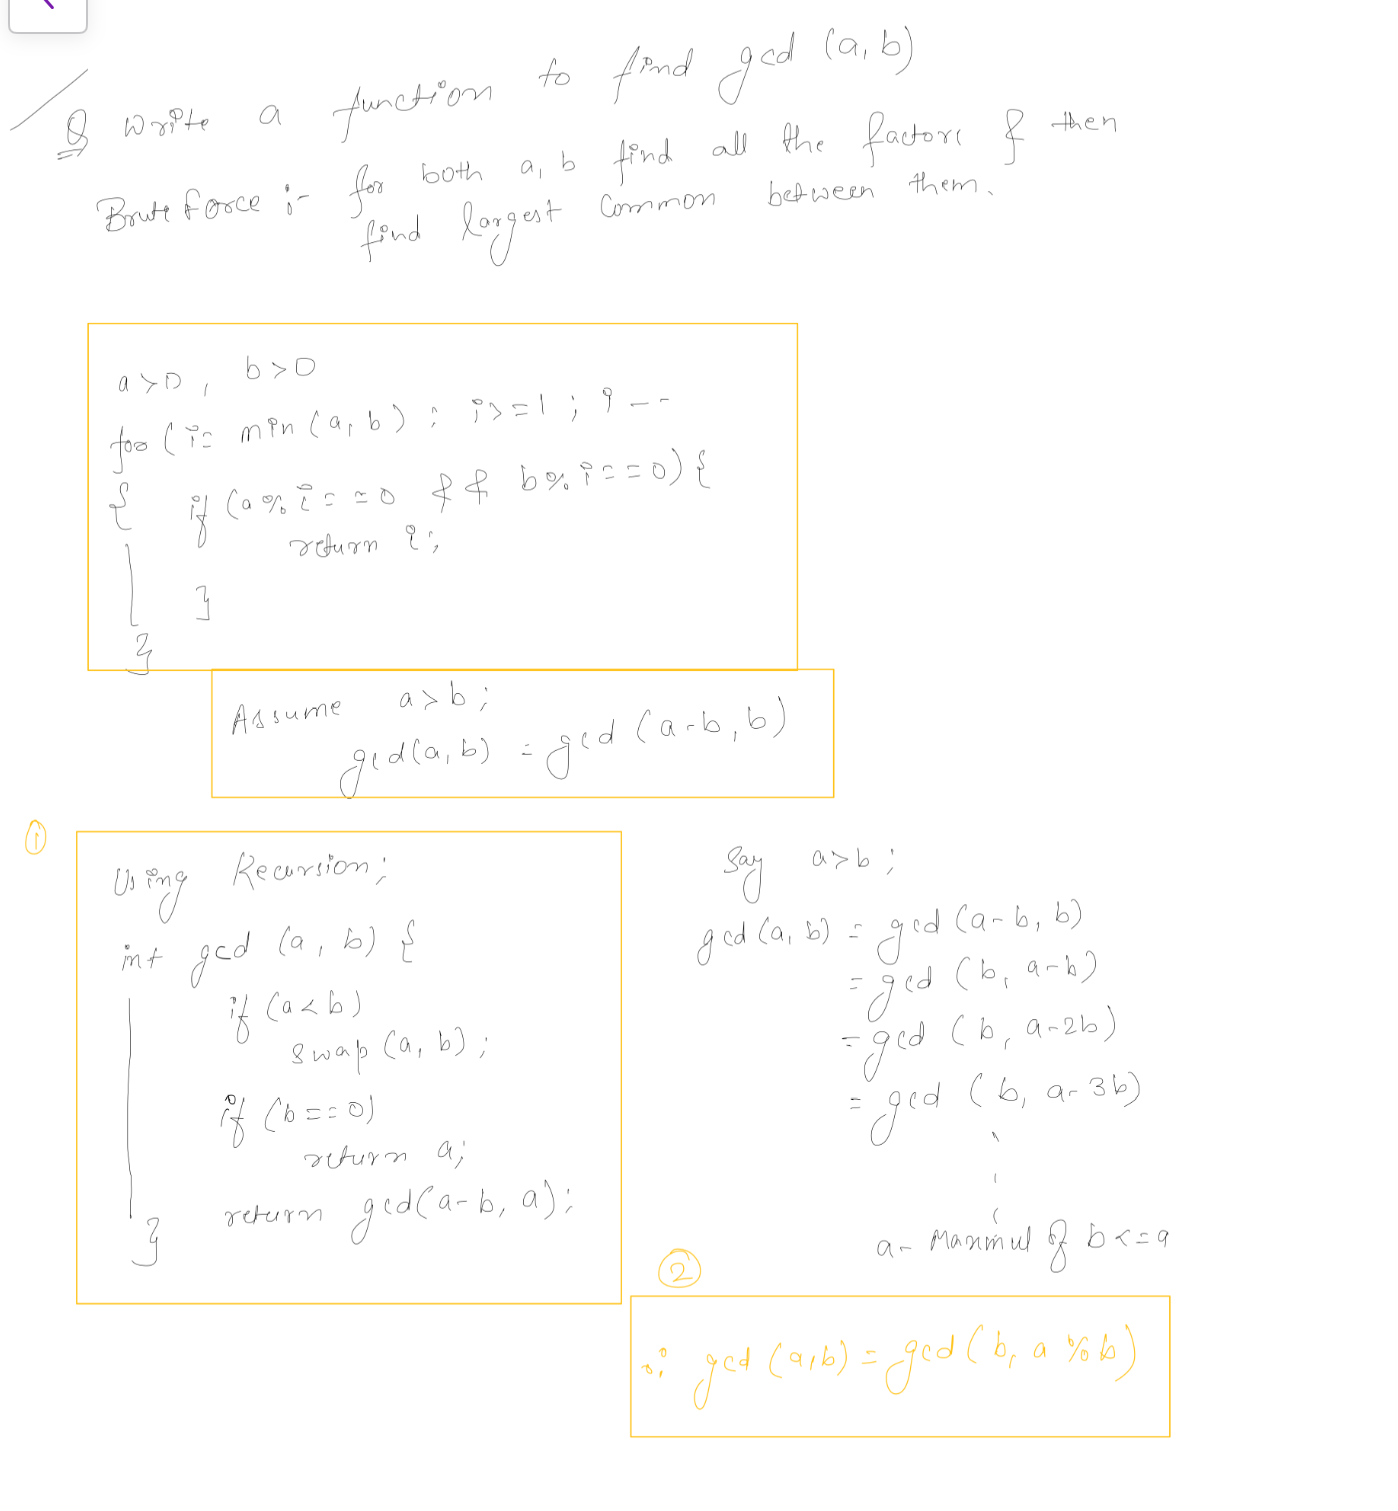 Q Write a function to find gcd (a, b)
Brute force :- for both a, b find all the factors & then
find largest common between them.
a>0, b>0
for (i= min (a, b) ; i>=1 ; i--
{ if (a%i==0 && b%i==0) {
return i;
}
}
Assume a>b;
gcd(a, b) = gcd (a-b, b)
①
Using Recursion;
int gcd (a, b) {
if (a<b)
swap (a, b);
if (b==0)
return a;
return gcd(a-b, a);
}
Say a>b;
gcd (a, b) = gcd (a-b, b)
= gcd (b, a-b)
= gcd (b, a-2b)
= gcd (b, a-3b)
a- Maximul of b<=a
②
∴ gcd (a,b) = gcd (b, a%b)